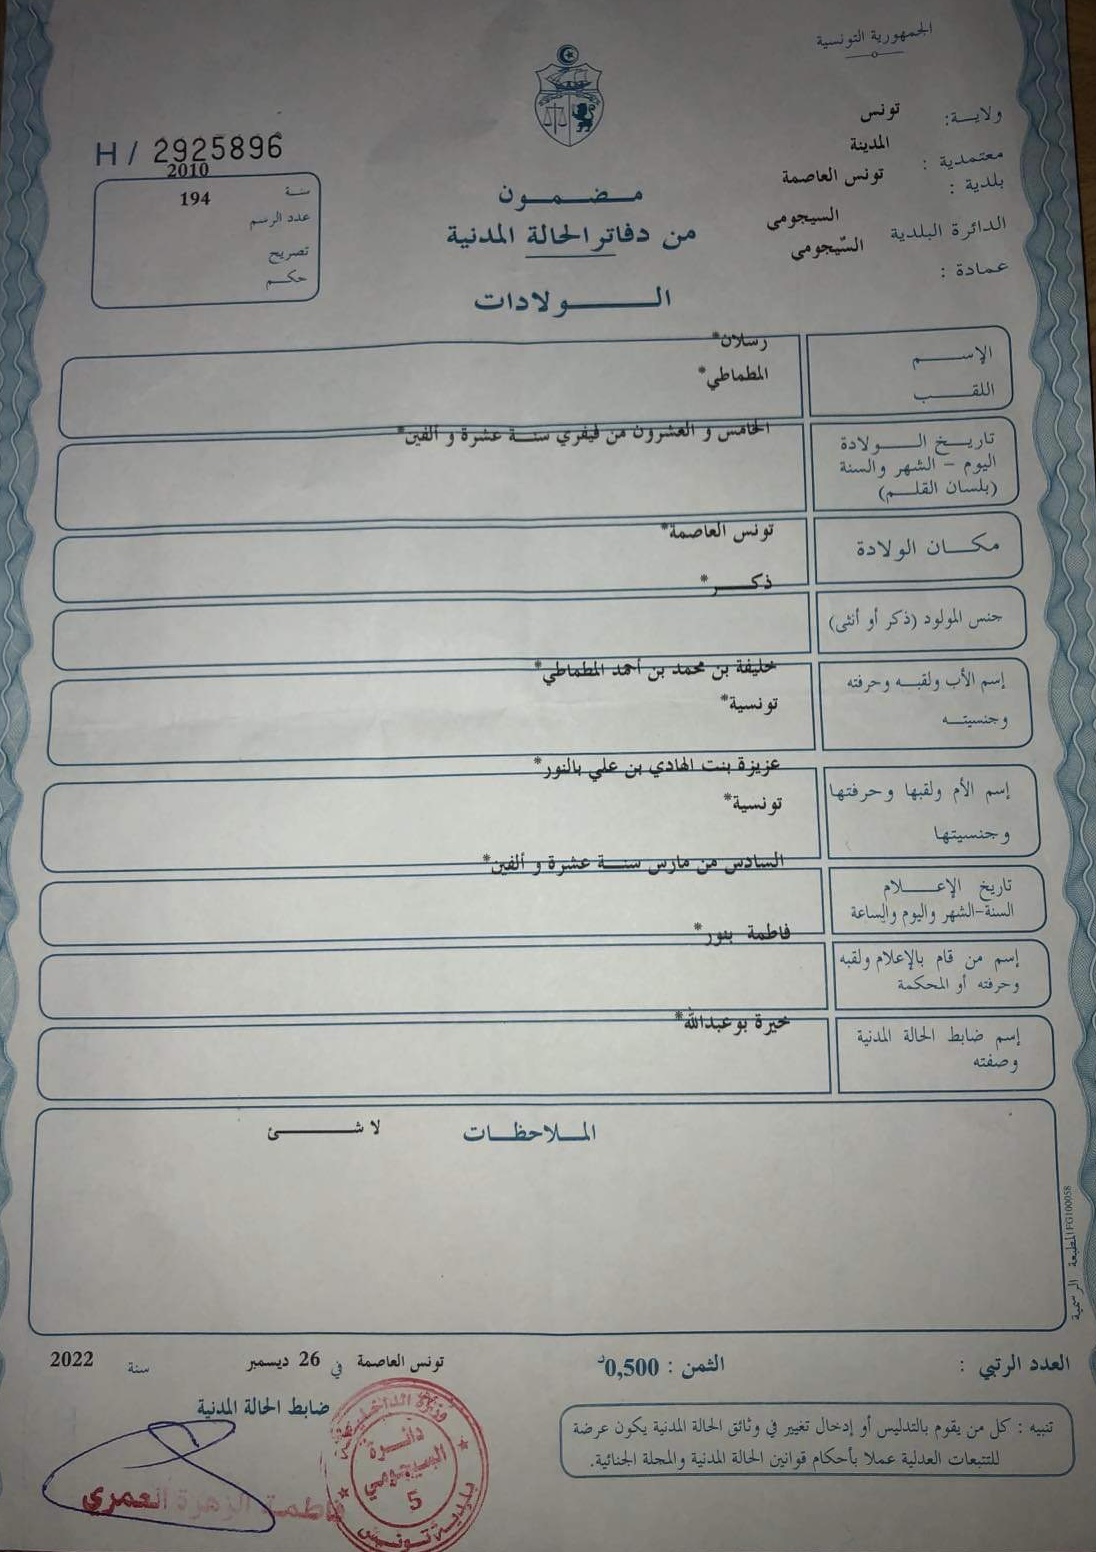 الجمهورية التونسية
ولاية: تونس
معتمدية : المدينة
بلدية : تونس العاصمة
الدائرة البلدية السيجومي
عمادة : السّيجومي
H / 2925896
سنة 2010
عدد الرسم 194
تصريح
حكم
مضمون
من دفاتر الحالة المدنية
الولادات
الإسم رسلان*
اللقب المطماطي*
تاريخ الولادة الخامس و العشرون من فيفري سنة عشرة و ألفين*
اليوم - الشهر والسنة
(بلسان القلم)
مكان الولادة تونس العاصمة*
جنس المولود (ذكر أو أنثى) ذكر*
إسم الأب ولقبه وحرفته خليفة بن محمد بن أحمد المطماطي*
وجنسيته تونسية*
إسم الأم ولقبها وحرفتها عزيزة بنت الهادي بن علي بالنور*
وجنسيتها تونسية*
تاريخ الإعلام السادس من مارس سنة عشرة و ألفين*
السنة-الشهر واليوم والساعة
إسم من قام بالإعلام ولقبه فاطمة بنور*
وحرفته أو المحكمة
إسم ضابط الحالة المدنية خيرة بوعبدالله*
وصفته
الملاحظات لا شئ
المطبعة الرسمية FG100058
العدد الرتبي : الثمن : 0,500د
تونس العاصمة في 26 ديسمبر سنة 2022
ضابط الحالة المدنية
تنبيه : كل من يقوم بالتدليس أو إدخال تغيير في وثائق الحالة المدنية يكون عرضة
للتتبعات العدلية عملا بأحكام قوانين الحالة المدنية والمجلة الجنائية.
وزارة الداخلية
دائرة
السيجومي
5
بلدية تونس
فاطمة الزهرة العمري